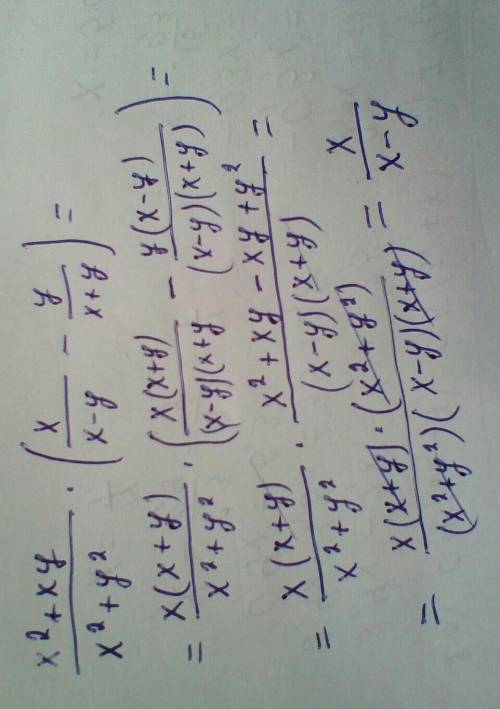 (x² + xy)/(x² + y²) · (x/(x-y) - y/(x+y)) =
= x(x+y)/(x² + y²) · (x(x+y)/((x-y)(x+y) - y(x-y)/((x-y)(x+y))) =
= x(x+y)/(x² + y²) · (x² + xy - xy + y²)/((x-y)(x+y)) =
= (x(x+y) · (x² + y²))/((x² + y²)(x-y)(x+y)) = x/(x-y)